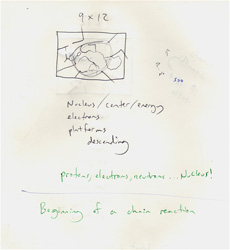 9 x 12
Nucleus/center/energy
electrons
platforms
descending
protons, electrons, neutrons... Nucleus!
Beginning of a chain reaction